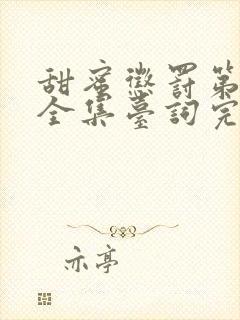 甜蜜懲罰第
全集臺詞完
亦亭